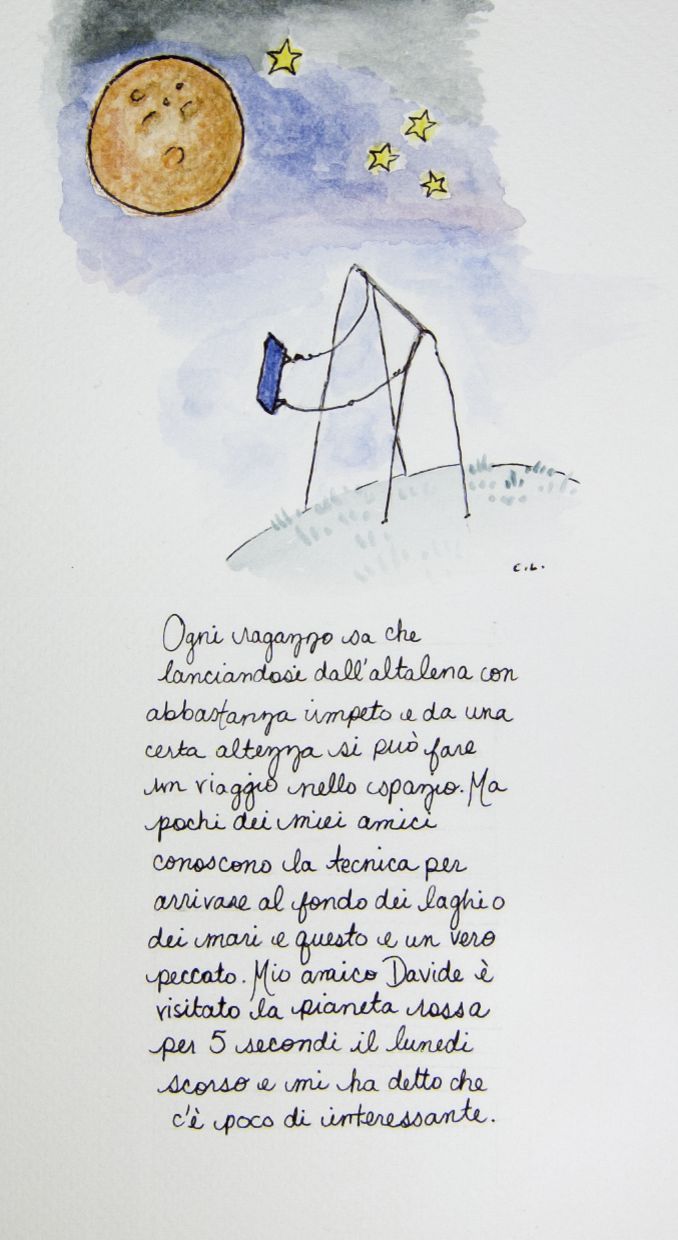 C.L.
Ogni ragazzo sa che
lanciandosi dall'altalena con
abbastanza impeto e da una
certa altezza si può fare
un viaggio nello spazio. Ma
pochi dei miei amici
conoscono la tecnica per
arrivare al fondo dei laghi o
dei mari e questo e un vero
peccato. Mio amico Davide è
visitato la pianeta rossa
per 5 secondi il lunedi
scorso e mi ha detto che
c'è poco di interessante.